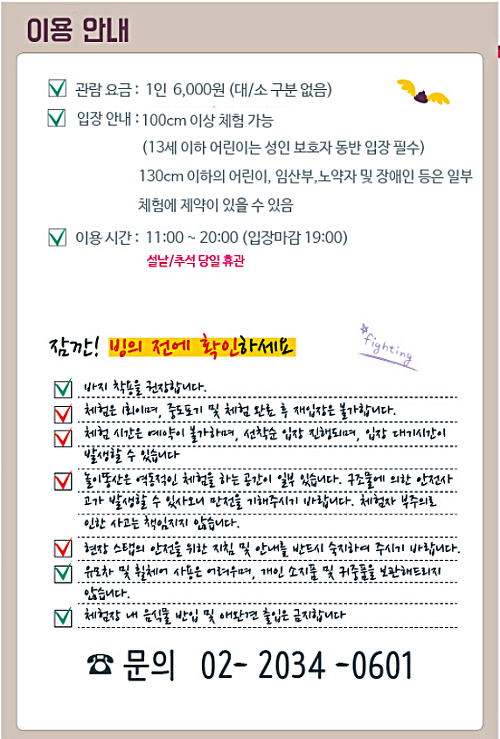 이용 안내
관람 요금 : 1인 6,000원 (대/소 구분 없음)
입장 안내 : 100cm 이상 체험 가능
(13세 이하 어린이는 성인 보호자 동반 입장 필수)
130cm 이하의 어린이, 임산부,노약자 및 장애인 등은 일부
체험에 제약이 있을 수 있음
이용 시간 : 11:00 ~ 20:00 (입장마감 19:00)
설날/추석 당일 휴관
잠깐! 빙의 전에 확인하세요
fighting
바지 착용을 권장합니다.
체험은 1회이며, 중도포기 및 체험 완료 후 재입장은 불가합니다.
체험 시간은 예약이 불가하며, 선착순 입장 진행되며, 입장 대기시간이
발생할 수 있습니다
놀이똥산은 역동적인 체험을 하는 공간이 일부 있습니다. 구조물에 의한 안전사
고가 발생할 수 있사오니 만전을 기해주시기 바랍니다. 체험자 부주의로
인한 사고는 책임지지 않습니다.
현장 스탭의 안전을 위한 지침 및 안내를 반드시 숙지하여 주시기 바랍니다.
유모차 및 휠체어 사용은 어려우며, 개인 소지품 및 귀중품을 보관해드리지
않습니다.
체험장 내 음식물 반입 및 애완견 출입은 금지합니다
☎ 문의 02- 2034 -0601